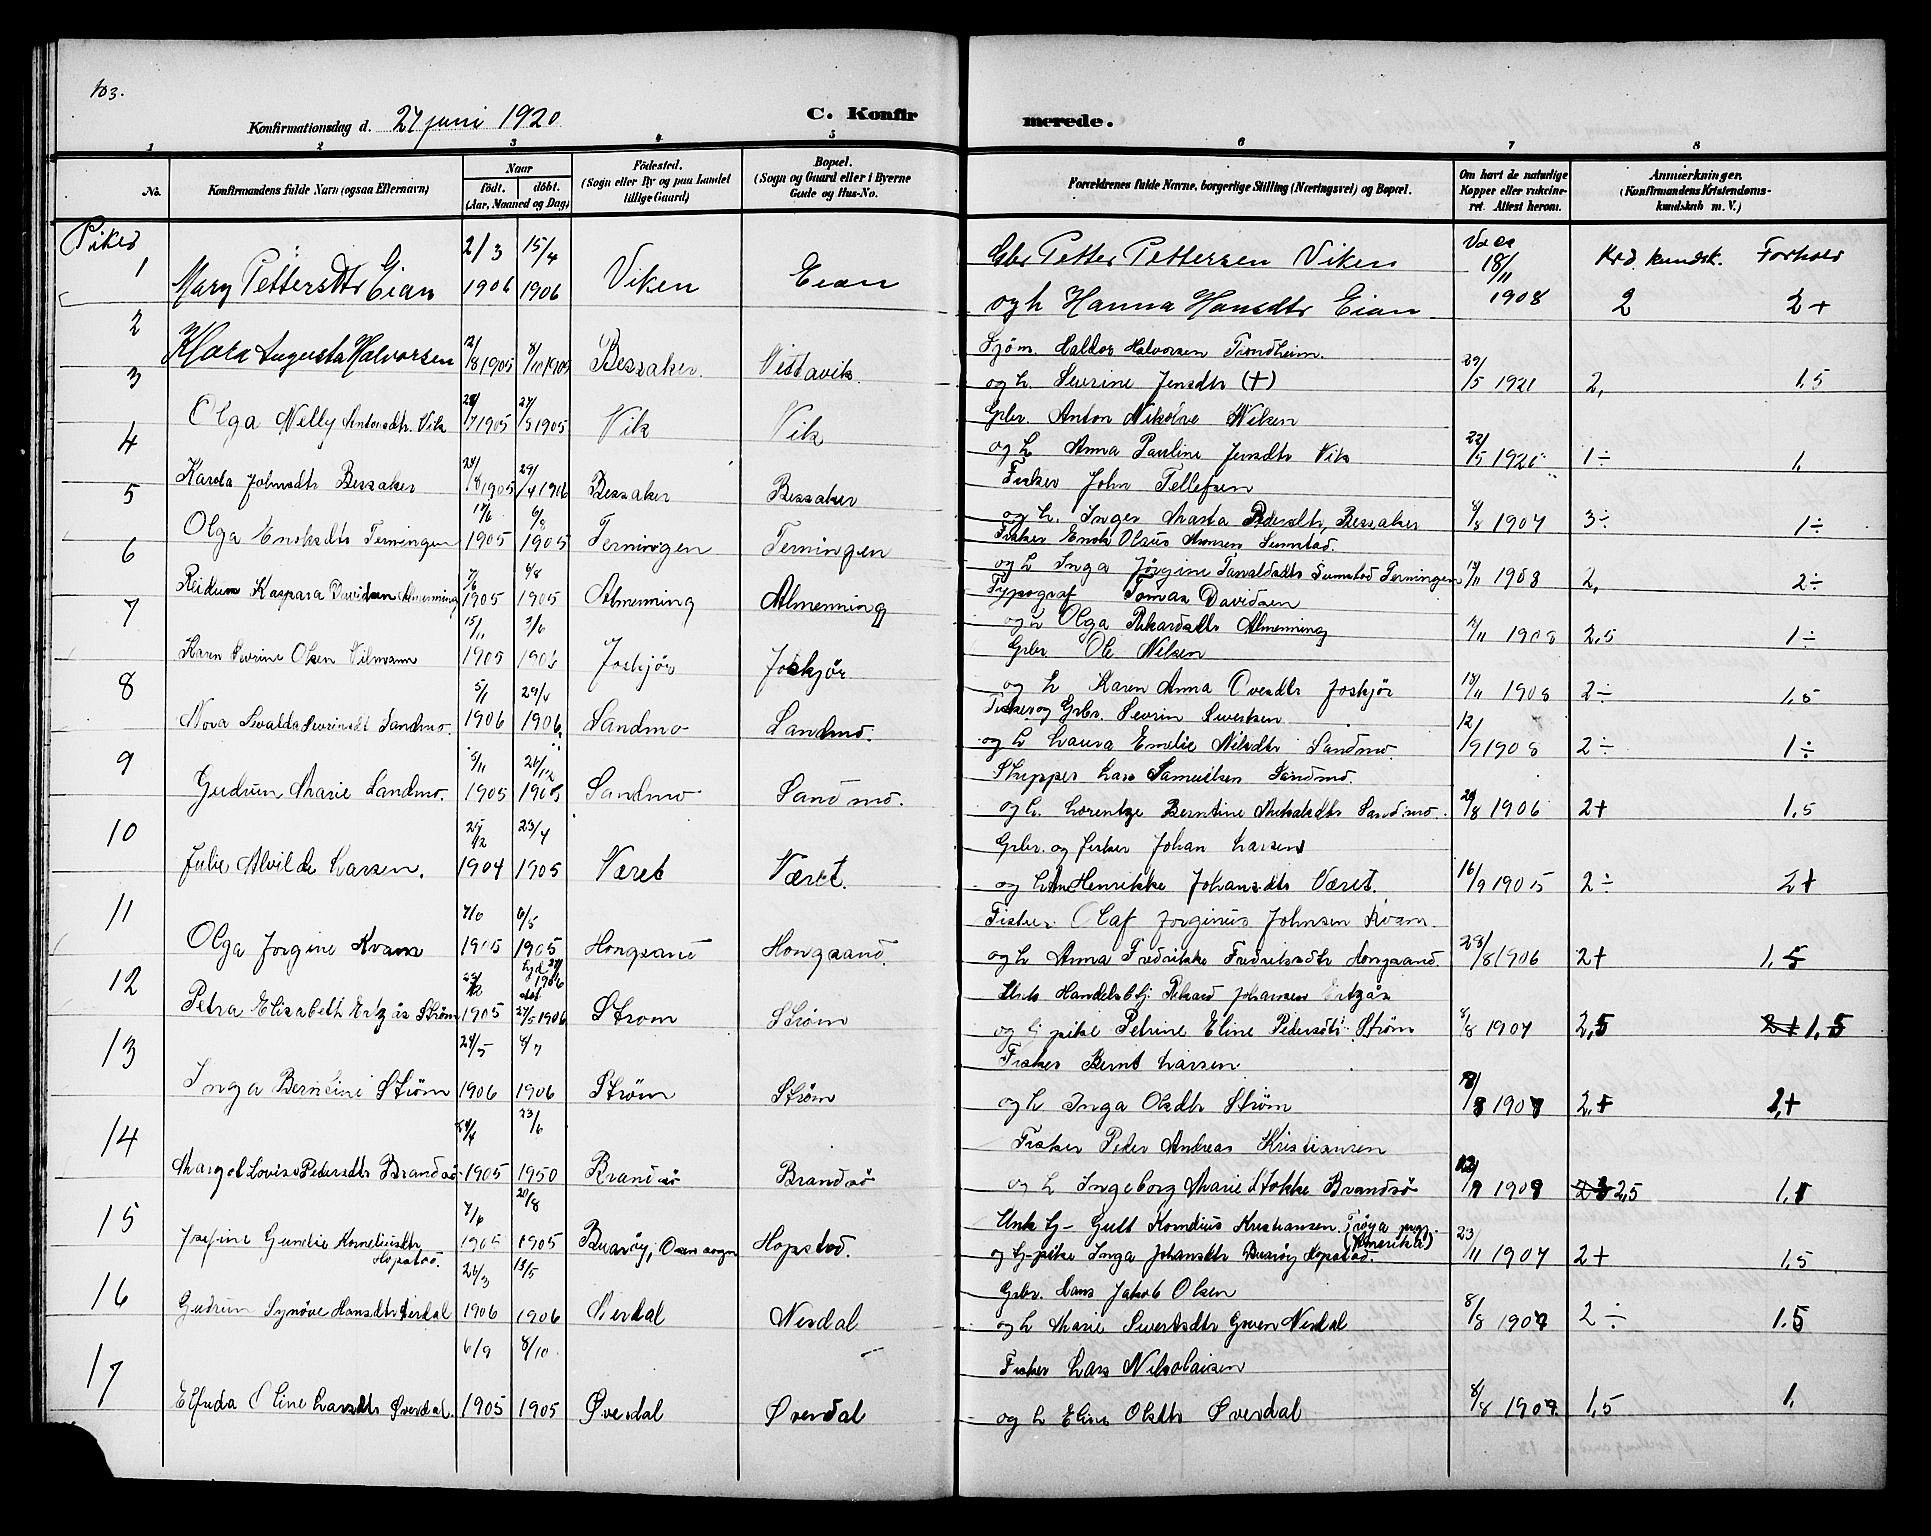 103.
Konfirmationsdag d. 27 juni 1920 C. Konfirmerede.
1 2 3 4 5 6 7 8
No. Konfirmandens fulde Navn (ogsaa Efternavn) Naar født. døbt. (Aar, Maaned og Dag) Fødested. (Sogn eller By og paa Landet tillige Gaard) Bopæl. (Sogn og Gaard eller i Byerne Gade og Hus-No.) Forældrenes fulde Navne, borgerlige Stilling (Næringsvei) og Bopæl. Om havt de naturlige Kopper eller vaksineret. Attest herom. Anmærkninger. (Konfirmandens Kristendomskundskab m. V.)
Piker
1 Mary Pettersdtr Eian 2/3 1906 15/4 1906 Viken Eian Gbr Petter Pettersen Viken 18/11 1908 Krd. kundsk. Forhold
og h Hanna Hansdtr Eian 2 2+
2 Klara Augusta Halvorsen 12/8 1905 8/10 1905 Bessaker. Vettavik. Sjøm. Haldor Halvorsen Trondheim.
og h. Severine Jensdtr (+) 29/5 1921 2, 1,5
3 Olga Nelly Antonsdtr. Vik /7 1905 27/5 1905 Vik Vik Gbr. Anton Nikolai Nilsen
og h Anna Pauline Jensdtr Vik 22/5 1920 1÷ 1,
4 Karda Johnsdtr Bessaker 24/8 1905 29/4 1906 Bessaker Bessaker Fisker John Tellefsen
og h. Inger Marta Pedersdtr, Bessaker 8/8 1907 3÷ 1÷
5 Olga Enoksdtr Terningen 17/6 1905 6/8 1905 Terningen Terningen Fisker Enok Olaus Monsen Sumstad.
og h Inga Jørgine Taraldsdtr Sumstad Terningen 19/11 1908 2, 2÷
6 Reidun Kaspara Davidsen Almenning 7/6 1905 6/8 1905 Almenning Almenning Typograf Tomas Davidsen
og h Olga Rikardsdtr Almenning /11 1908 2,5 1÷
7 Karen Severine Olsen Vilmann 15/11 1905 3/6 1906 Joskjør Joskjør Gbr. Ole Nilsen
og h Karen Anna Ovesdtr Joskjør 18/11 1908 2÷ 1,5
8 Nora Sevalda Sevrinsdt Sandmo. 5/1 1906 29/4 1906. Sandmo Sandmo. Fisker og Gbr. Sevrin Sivertsen
og h Laura Emelie Nilsdtr Sandmo 12/9 1908 2÷ 1÷
9 Gudrun Marie Sandmo. 3/11 1905 26/12 1905 Sandmo Sandmo. Skipper Lars Samuelsen Sandmo.
og h. Lorentze Berntine Mikalsdtr Sandmo. 29/8 1906 2+ 1,5
10 Julie Alvilde Larsen. 25/12 1904 23/4 1905 Været Været. Gbr. og fisker Johan Larsen
og h Henrikke Johansdtr Været. 16/9 1905 2÷ 2+
11 Olga Jorgine Kvam 1905 6/5 1905 Hongsand Hongsand. Fisker. Olaf Jorginus Johnsen Kvam
og h Anna Fredrikke Fredriksdtr Hongsand. 29/8 1906 2+ 1,5
12 Petra Elisabeth Ertzås Strøm 1905 27/5 1906 Strøm Strøm Unk Handelsbtj. Rikard Johansen Ertzås
og pike Petrine Eline Pedersdtr Strøm 8/8 1907 2,5 2+ 1,5
13 Inga Berntine Strøm 24/5 1906 8/7 1906 Strøm Strøm Fisker Bernt Larsen
og h Inga Olsdtr Strøm /8 1907 2,+ 2,+
14 Margot Lovise Pedersdtr Brandsø 24/4 1905 23/6 1950 Brandsø Brandsø Fisker Peder Andreas Kristiansen
og h Ingeborg Marie Stokke Brandsø /9 1909 2,5 1,
15 Josefine Gundie Korneliusdtr Hopstad. 7/6 1905 20/8 1905 Buarøy, Osen sogn Hopstad. Unk G- Gutt Kornelius Kristiansen. Frøya pgj. (Amerika)
og G-pike Inga Johansdtr Buarøy Hopstad. 23/11 1907 2+ 1,5
16 Gudrun Synöve Hansdtr Nerdal 26/3 1906 13/5 1906 Nerdal Nerdal Gbr. Hans Jakob Olsen
og h Marie Sivertsdtr Green Nerdal 8/8 1907 2÷ 1.5
17 Elfrida Oline Larsdtr Øverdal. 6/9 1905 8/10 1905 Øverdal Øverdal Fisker Lars Nikolaisen
og h Eline Olsdtr Øverdal 8/8 1907. 1,5 1,